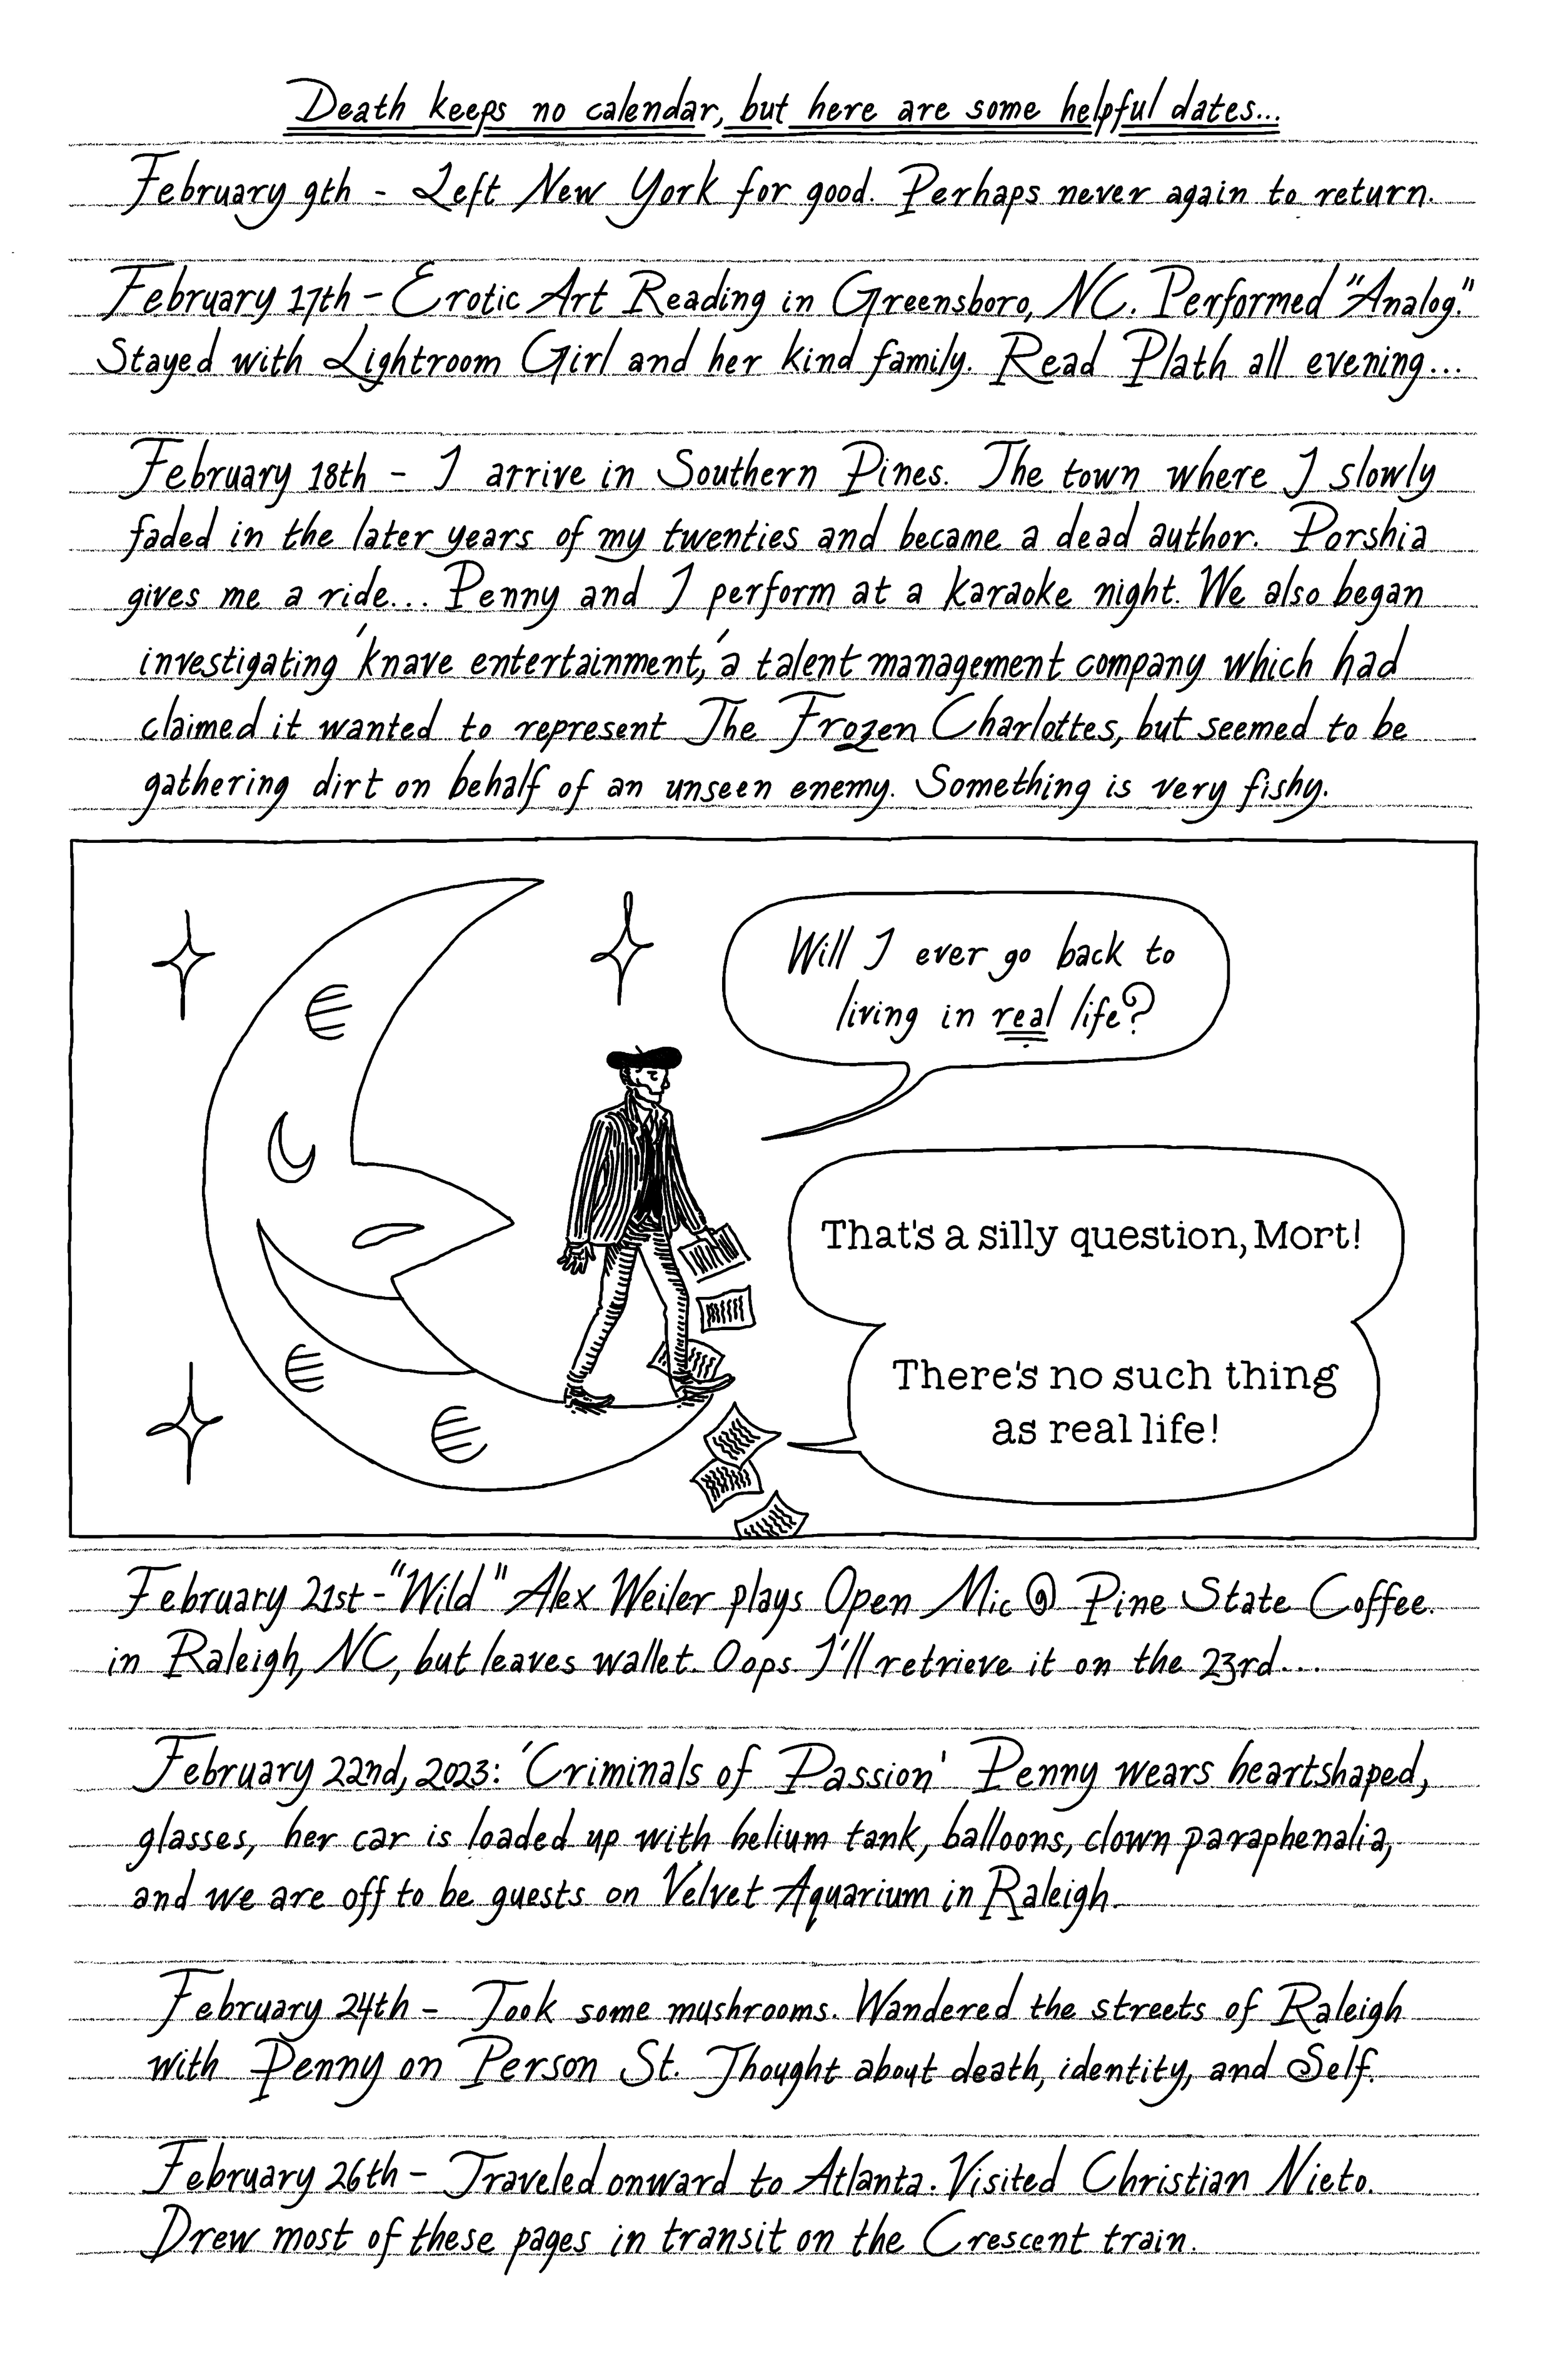 Death keeps no calendar, but here are some helpful dates...
February 9th - Left New York for good. Perhaps never again to return.
February 17th - Erotic Art Reading in Greensboro, NC. Performed "Analog."
Stayed with Lightroom Girl and her kind family. Read Plath all evening...
February 18th - I arrive in Southern Pines. The town where I slowly
faded in the later years of my twenties and became a dead author. Porshia
gives me a ride... Penny and I perform at a karaoke night. We also began
investigating 'knave entertainment,' a talent management company which had
claimed it wanted to represent The Frozen Charlottes, but seemed to be
gathering dirt on behalf of an unseen enemy. Something is very fishy.
Will I ever go back to
living in real life?
That's a silly question, Mort!
There's no such thing
as real life!
February 21st - "Wild" Alex Weiler plays Open Mic @ Pine State Coffee.
in Raleigh, NC, but leaves wallet. Oops. I'll retrieve it on the 23rd...
February 22nd, 2023: 'Criminals of Passion' Penny wears heartshaped,
glasses, her car is loaded up with helium tank, balloons, clown paraphenalia,
and we are off to be guests on Velvet Aquarium in Raleigh.
February 24th - Took some mushrooms. Wandered the streets of Raleigh
with Penny on Person St. Thought about death, identity, and Self.
February 26th - Traveled onward to Atlanta. Visited Christian Nieto.
Drew most of these pages in transit on the Crescent train.